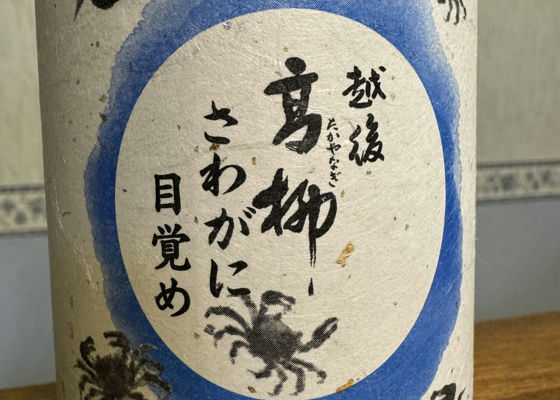 越後
高柳
たかやなぎ
さわがに
目覚め